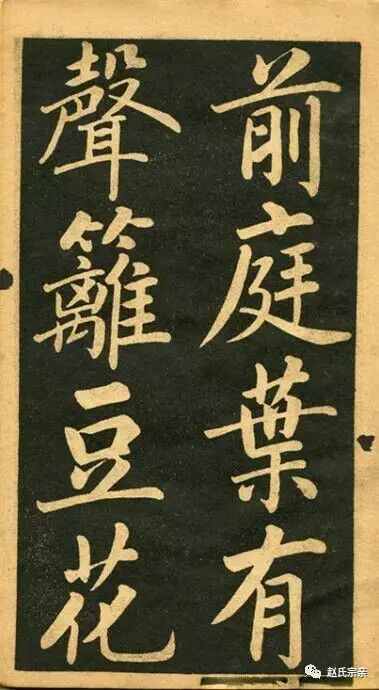 前庭葉有
聲籬豆花
赵氏宗亲